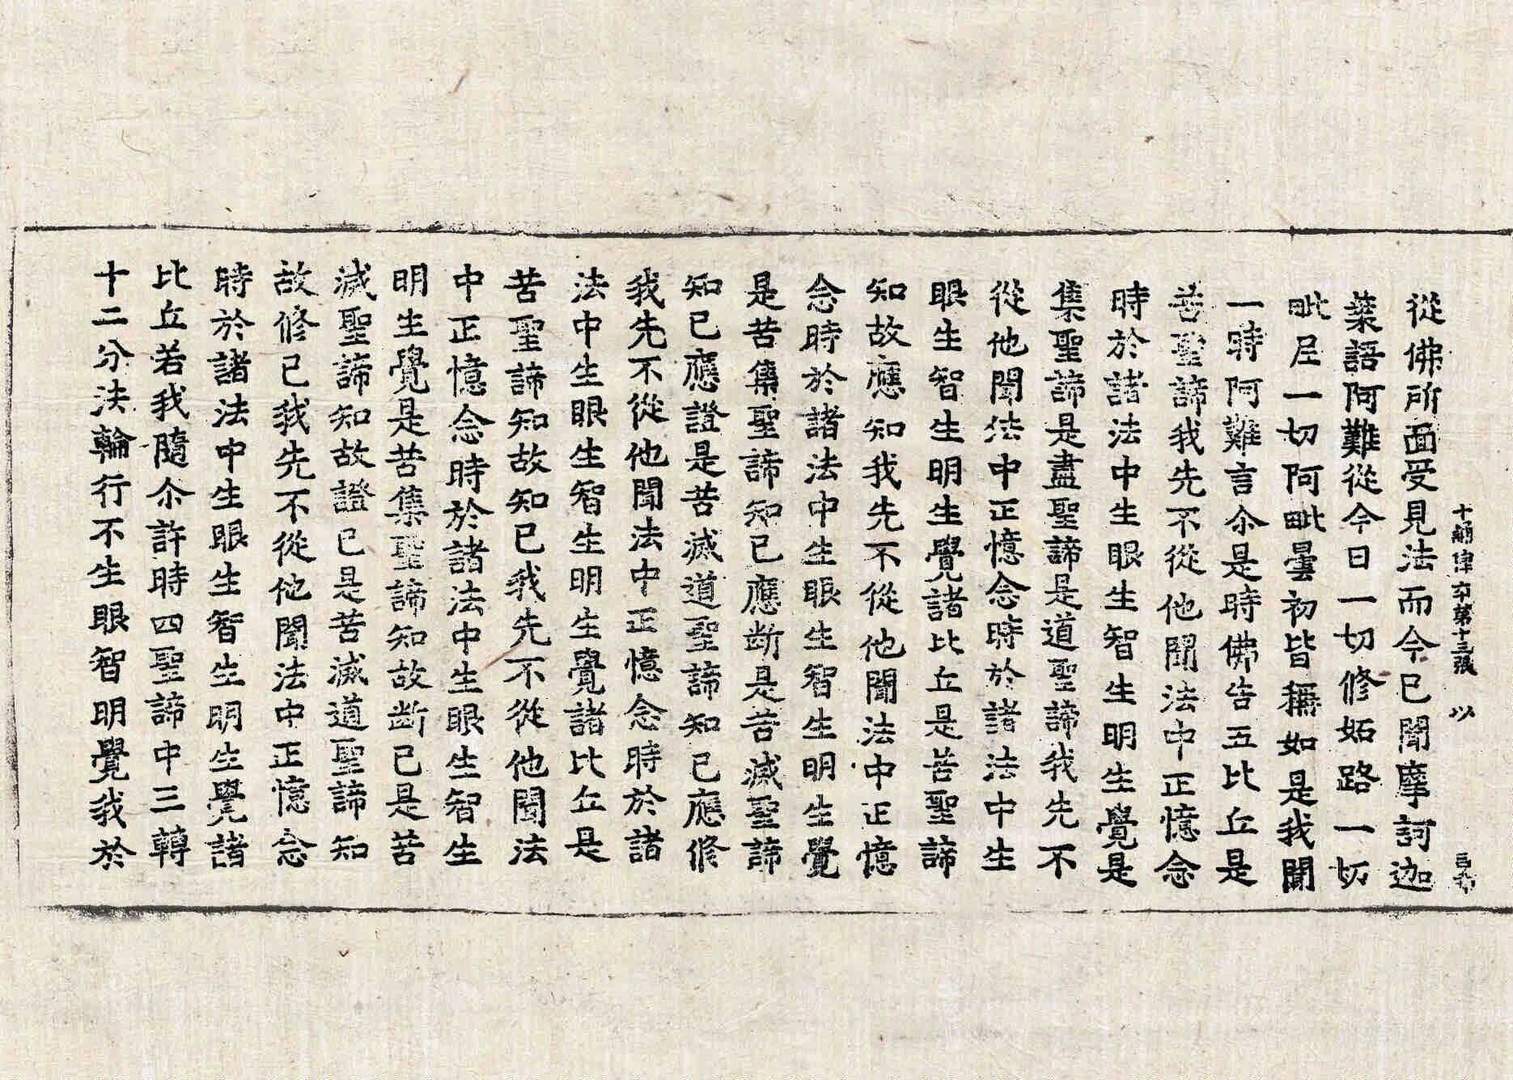 十誦律六十第十三張 以
從佛所面受見法而今已聞摩訶迦
葉語阿難從今日一切修妬路一切
毗尼一切阿毗曇初皆稱如是我聞
一時阿難言尒是時佛告五比丘是
苦聖諦我先不從他聞法中正憶念
時於諸法中生眼生智生明生覺是
集聖諦是盡聖諦是道聖諦我先不
從他聞法中正憶念時於諸法中生
眼生智生明生覺諸比丘是苦聖諦
知故應知我先不從他聞法中正憶
念時於諸法中生眼生智生明生覺
是苦集聖諦知已應断是苦滅聖諦
知已應證是苦滅道聖諦知已應修
我先不從他聞法中正憶念時於諸
法中生眼生智生明生覺諸比丘是
苦聖諦知故知已我先不從他聞法
中正憶念時於諸法中生眼生智生
明生覺是苦集聖諦知故断已是苦
滅聖諦知故證已是苦滅道聖諦知
故修已我先不從他聞法中正憶念
時於諸法中生眼生智生明生覺諸
比丘若我隨尒許時四聖諦中三轉
十二分法輪行不生眼智明覺我於